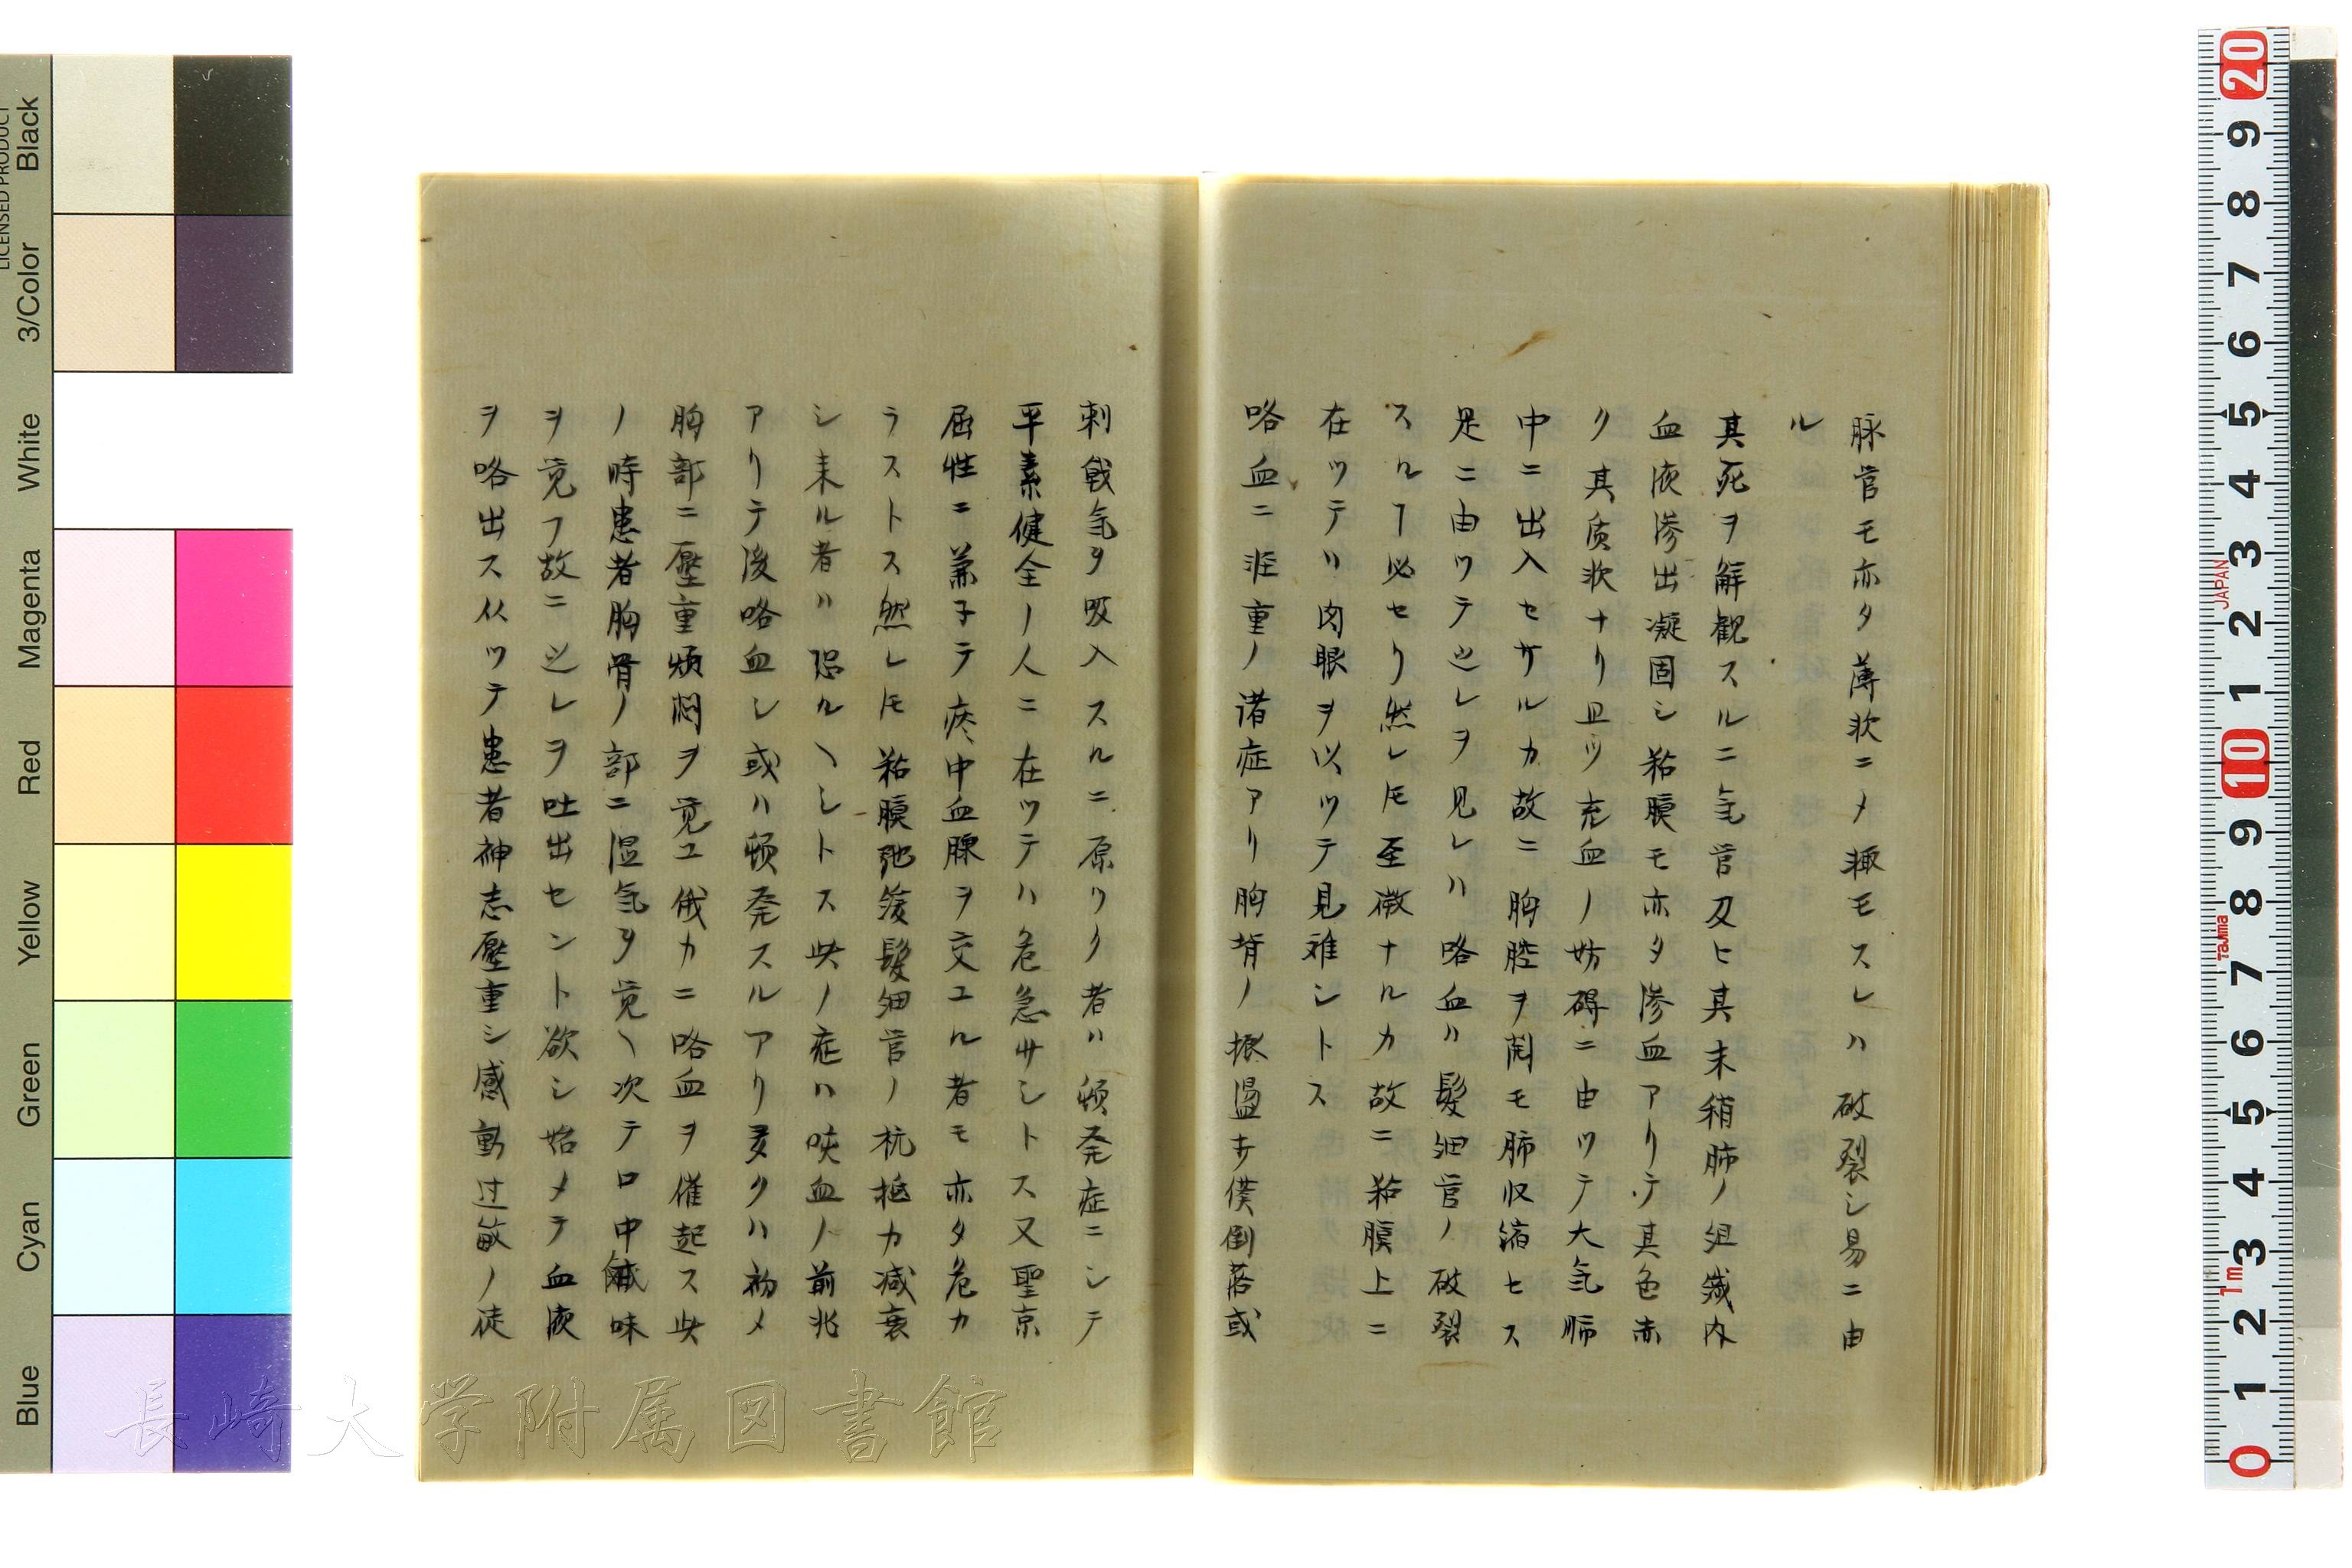 脉管モ亦タ薄弱ニメ輙モスレハ破裂シ易ニ由
ル
其死ヲ解観スルニ気管及ヒ其末稍肺ノ組織内
血液滲出凝固シ粘膜モ亦タ滲血アリテ其色赤
ク其質軟ナリ且ツ充血ノ妨碍ニ由ツテ大気肺
中ニ出入セサルカ故ニ胸腔ヲ開モ肺収縮セス
是ニ由ツテ之レヲ見レハ咯血ハ髪細管ノ破裂
スルヿ必セリ然レ𪜈至微ナルカ故ニ粘膜上ニ
在ツテハ肉眼ヲ以ツテ見難シトス
咯血ニ軽重ノ諸症アリ胸背ノ振盪或僕倒落或
刺戟気ヲ吸入スルニ原ツク者ハ頓発症ニシテ
平素健全ノ人ニ在ツテハ危急サシトス又聖京
屈性ニ兼子テ痰中血腺ヲ交ユル者モ亦タ危カ
ラストス然レ𪜈粘膜弛緩髪細管ノ抗抵力減衰
シ来ル者ハ恐ルヽシトス此ノ症ハ咳血ノ前兆
アリテ後咯血シ或ハ頓発スルアリ多クハ初メ
胸部ニ壓重煩悶ヲ覚ユ俄カニ咯血ヲ催起ス此
ノ時患者胸骨ノ部ニ温気ヲ覚ヘ次テ口中鹹味
ヲ覚フ故ニ之レヲ吐出セント欲シ始メテ血液
ヲ咯出ス从ツテ患者神志壓重シ感動过敏ノ徒
Black
3/Color
White
Magenta
Red
Yellow
Green
Cyan
Blue
LICENSED PRODUCT
20
9
8
7
6
5
4
3
2
1
10
9
8
7
6
5
4
3
2
1
0
JAPAN
Tajima
1m
長崎大学附属図書館